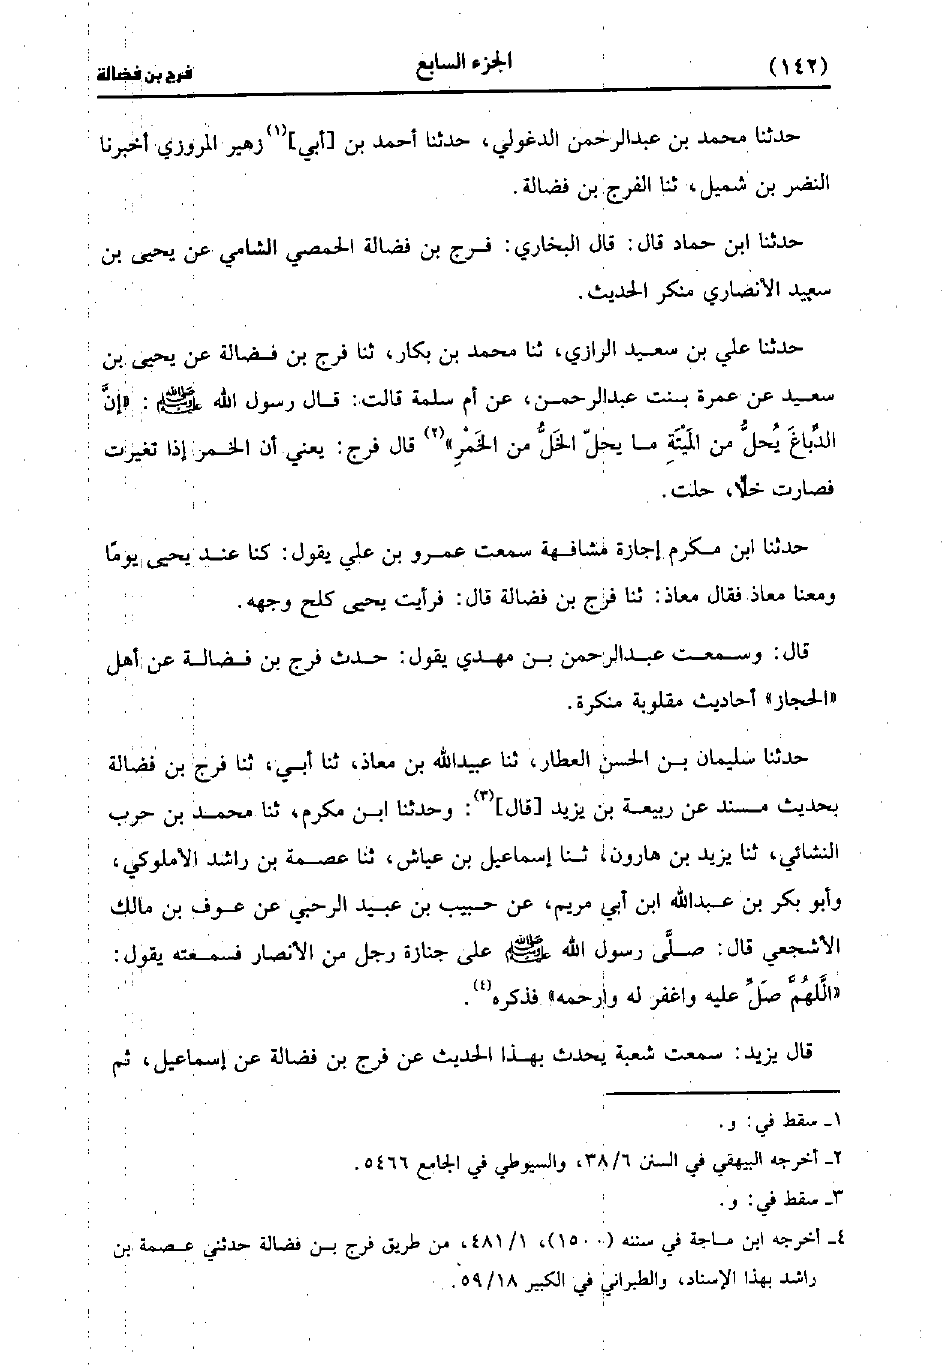 (١٤٢) الجزء السابع فرج بن فضالة
حدثنا محمد بن عبدالرحمن الدغولي، حدثنا أحمد بن [أبي](١) زهير المروزي أخبرنا
النضر بن شميل، ثنا الفرج بن فضالة.
حدثنا ابن حماد قال: قال البخاري: فرج بن فضالة الحمصي الشامي عن يحيى بن
سعيد الأنصاري منكر الحديث.
حدثنا علي بن سعيد الرازي، ثنا محمد بن بكار، ثنا فرج بن فضالة عن يحيى بن
سعيد عن عمرة بنت عبدالرحمن، عن أم سلمة قالت: قال رسول الله ﷺ: «إنَّ
الدِّباغَ يُحلُّ من المَيْتَةِ ما يحلّ الخَلُّ من الخَمْرِ»(٢) قال فرج: يعني أن الخمر إذا تغيرت
فصارت خلًا، حلت.
حدثنا ابن مكرم إجازة مشافهة سمعت عمرو بن علي يقول: كنا عند يحيى يومًا
ومعنا معاذ فقال معاذ: ثنا فرج بن فضالة قال: فرأيت يحيى كلح وجهه.
قال: وسمعت عبدالرحمن بن مهدي يقول: حدث فرج بن فضالة عن أهل
«الحجاز» أحاديث مقلوبة منكرة.
حدثنا سليمان بن الحسن العطار، ثنا عبيدالله بن معاذ، ثنا أبي، ثنا فرج بن فضالة
بحديث مسند عن ربيعة بن يزيد [قال](٣): وحدثنا ابن مكرم، ثنا محمد بن حرب
النشائي، ثنا يزيد بن هارون، ثنا إسماعيل بن عياش، ثنا عصمة بن راشد الأملوكي،
وأبو بكر بن عبدالله ابن أبي مريم، عن حبيب بن عبيد الرحبي عن عوف بن مالك
الأشجعي قال: صلَّى رسول الله ﷺ على جنازة رجل من الأنصار فسمعته يقول:
«الَّلهُمَّ صَلِّ عليه واغفر له وارحمه» فذكره(٤).
قال يزيد: سمعت شعبة يحدث بهذا الحديث عن فرج بن فضالة عن إسماعيل، ثم
١ـ سقط في: و.
٢ـ أخرجه البيهقي في السنن ٣٨/٦، والسيوطي في الجامع ٥٤٦٦.
٣ـ سقط في: و.
٤ـ أخرجه ابن ماجة في سننه (١٥٠٠)، ٤٨١/١، من طريق فرج بن فضالة حدثني عصمة بن
راشد بهذا الإسناد، والطبراني في الكبير ٥٩/١٨.